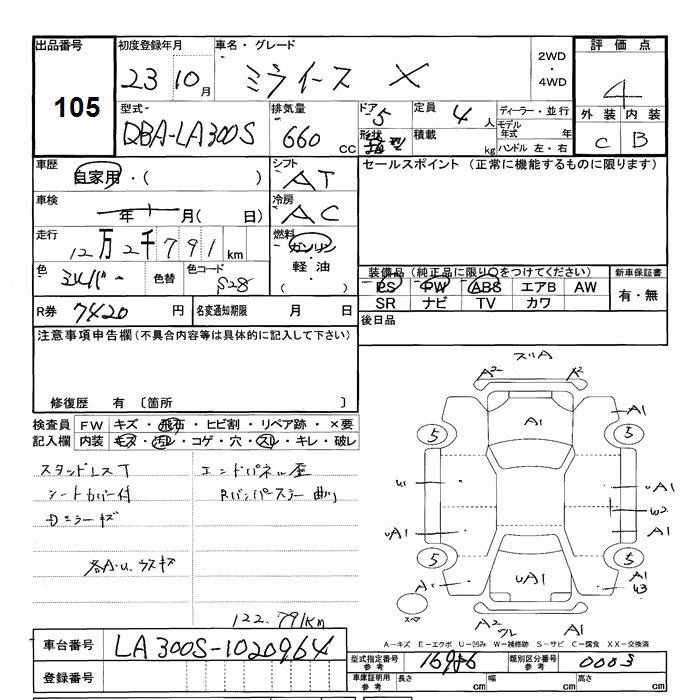 出品番号 初度登録年月 車名・グレード 2WD 評価点
105 23 10月 ミライース X ・ 4
4WD 外装 内装
型式 排気量 ドア 定員 ディーラー・並行 C B
DBA-LA300S 660 CC 5 4人 モデル年式 年
形状 積載 kg ハンドル 左・右
車歴 シフト セールスポイント (正常に機能するものに限ります)
自家用・( ) AT
車検 冷房
年 月( 日) AC
走行 燃料
12万2千791km ガソリン
色 シルバー 色替 色コード S28 軽油
装備品(純正品に限り○をつけてください) 新車保証書
PS PW ABS エアB AW 有・無
SR ナビ TV カワ
R券 7420円 名変通知期限 月 日 後日品
注意事項申告欄(不具合内容等は具体的に記入して下さい)
修復歴 有 〔箇所 〕
検査員 FW キズ・飛石・ヒビ割・リペア跡・×要
記入欄 内装 キズ・汚レ・コゲ・穴・スレ・キレ・破レ
スタッドレスT エンドパネル歪
シートカバー付 Rバンパーステー曲り
Dミラーキズ
各A・U、ウスキズ
122,791km
スリA
A2 A2
A1 A1
5 5
U1 UA1
W2
UA1 A1
5 5
A1 UA1 A1
U3
スペア
A2 ワレ A1
A−キズ E−エクボ U−凹み W−補修跡 S−サビ C−腐食 XX−交換済
車台番号 LA300S-1020964
登録番号
型式指定番号 参考 16986 類別区分番号 参考 0003
車庫証明用 参考 長さ cm 幅 cm 高さ cm